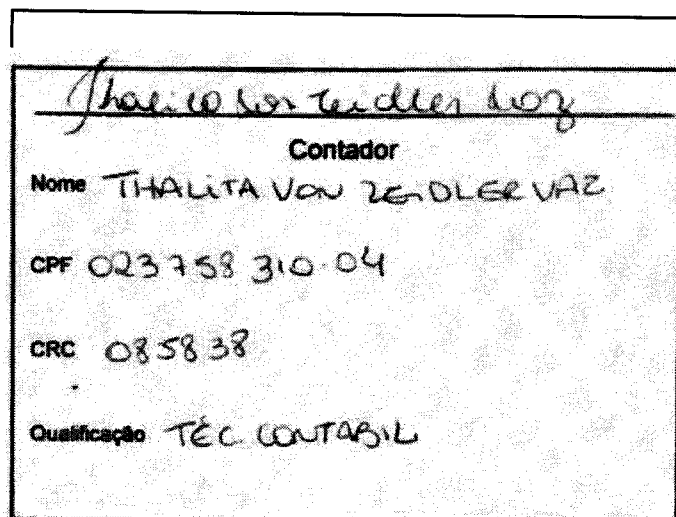 Thalita von Zeidler Vaz
Contador
Nome THALITA VON ZEIDLER VAZ
CPF 023758 310-04
CRC 085838
Qualificação TÉC CONTABIL